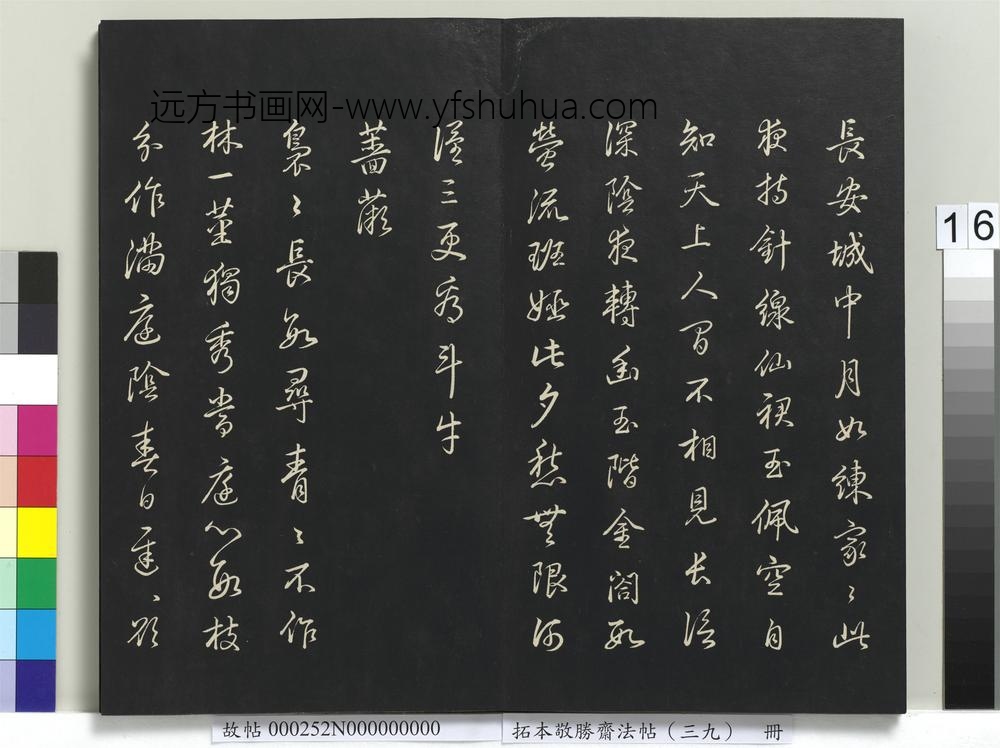 長安城中月如練家〻此
夜持針線仙裙玉佩空自
知天上人間不相見長信
深陰夜轉幽玉階金閣數
螢流班姬此夕愁無限河
漢三更看斗牛
薔薇
裊〻長數尋青〻不作
林一莖獨秀當庭心數枝
分作滿庭陰春日遲〻欲
远方书画网-www.yfshuhua.com
16
故帖 000252N000000000
拓本敬勝齋法帖（三九） 冊